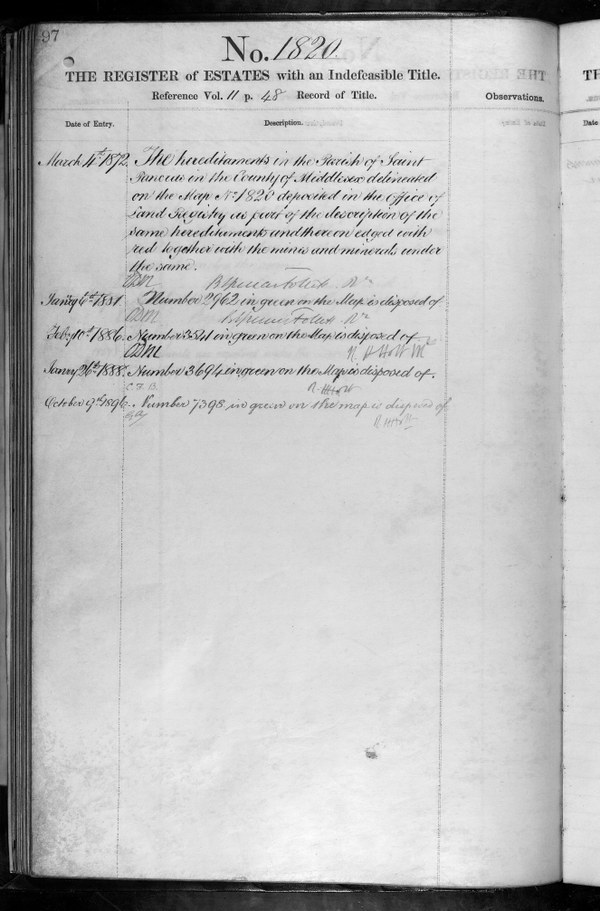 97
No. 1820
THE REGISTER of ESTATES with an Indefeasible Title.
Reference Vol. 11 p. 48 Record of Title.
Observations.
Date of Entry.
Description.
March 4th 1872. The hereditaments in the Parish of Saint
Pancras in the County of Middlesex delineated
on the Map No 1820 deposited in the Office of
Land Registry as part of the description of the
same hereditaments and thereon edged with
red together with the mines and minerals under
the same.
Janry 6th 1881 Number 2962 in green on the Map is disposed of
Feby 10th 1886. Number 3541 in green on the Map is disposed of
R H Holt
Janry 26th 1888. Number 3694 in green on the Map is disposed of.
C. F. B. R H Holt
October 9th 1896. Number 7398 in green on the map is disposed of
R H Holt
TH
Date